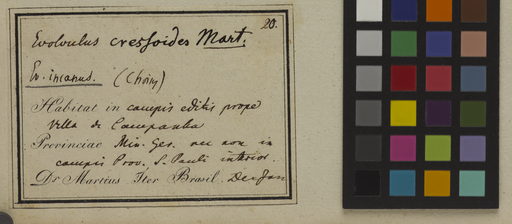 20.
Evolvulus cressoides Mart.
Ev. incanus. (Choisy)
Habitat in campis editis prope
Villa de Campanha
Provinciae Min. Ger. nec non in
campis Prov. S. Pauli interior.
Dr Martius Iter Brasil. Dec Jan